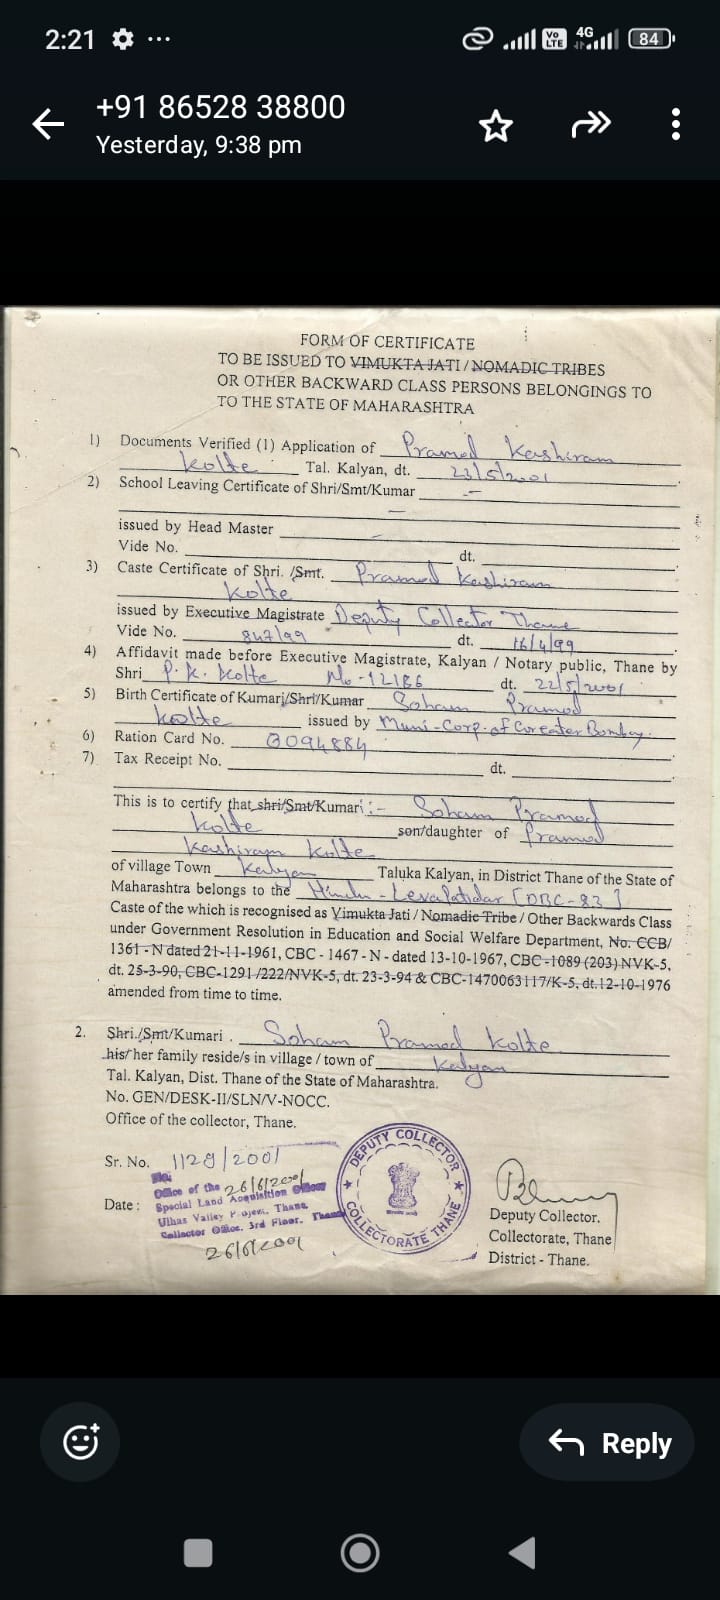 2:21
Vo LTE 4G 84
+91 86528 38800
Yesterday, 9:38 pm
FORM OF CERTIFICATE
TO BE ISSUED TO VIMUKTA JATI / NOMADIC TRIBES
OR OTHER BACKWARD CLASS PERSONS BELONGINGS TO
TO THE STATE OF MAHARASHTRA
1) Documents Verified (1) Application of Pramod Kashiram
Kolte Tal. Kalyan, dt. 23/5/2001
2) School Leaving Certificate of Shri/Smt/Kumar —
—
issued by Head Master —
Vide No. dt.
3) Caste Certificate of Shri. /Smt. Pramod Kashiram
Kolte
issued by Executive Magistrate Deputy Collector Thane
Vide No. 847/99 dt. 16/4/99
4) Affidavit made before Executive Magistrate, Kalyan / Notary public, Thane by
Shri P. K. Kolte No-12186 dt. 22/5/2001
5) Birth Certificate of Kumari/Shri/Kumar Soham Pramod
Kolte issued by Muni-Corp. of Greater Bombay.
6) Ration Card No. 094884
7) Tax Receipt No. dt.
This is to certify that shri/Smt/Kumari :- Soham Pramod
Kolte son/daughter of Pramod
Kashiram Kolte
of village Town Kalyan Taluka Kalyan, in District Thane of the State of
Maharashtra belongs to the Hindu - Levapatidar [OBC-83]
Caste of the which is recognised as Vimukta Jati / Nomadic Tribe / Other Backwards Class
under Government Resolution in Education and Social Welfare Department, No. CCB/
1361 - N dated 21-11-1961, CBC - 1467 - N - dated 13-10-1967, CBC-1089 (203) NVK-5,
dt. 25-3-90, CBC-1291 /222/NVK-5, dt. 23-3-94 & CBC-1470063117/K-5, dt.12-10-1976
amended from time to time.
2. Shri./Smt/Kumari . Soham Pramod Kolte
his/her family reside/s in village / town of Kalyan
Tal. Kalyan, Dist. Thane of the State of Maharashtra.
No. GEN/DESK-II/SLN/V-NOCC.
Office of the collector, Thane.
Sr. No. 1129/2001
No.
Office of the 26/6/2001
Date : Special Land Acquisition Officer
Ulhas Valley Project, Thane
Collector Office, 3rd Floor, Thane
26/6/2001
DEPUTY COLLECTOR
COLLECTORATE THANE
Deputy Collector.
Collectorate, Thane
District - Thane.
Reply